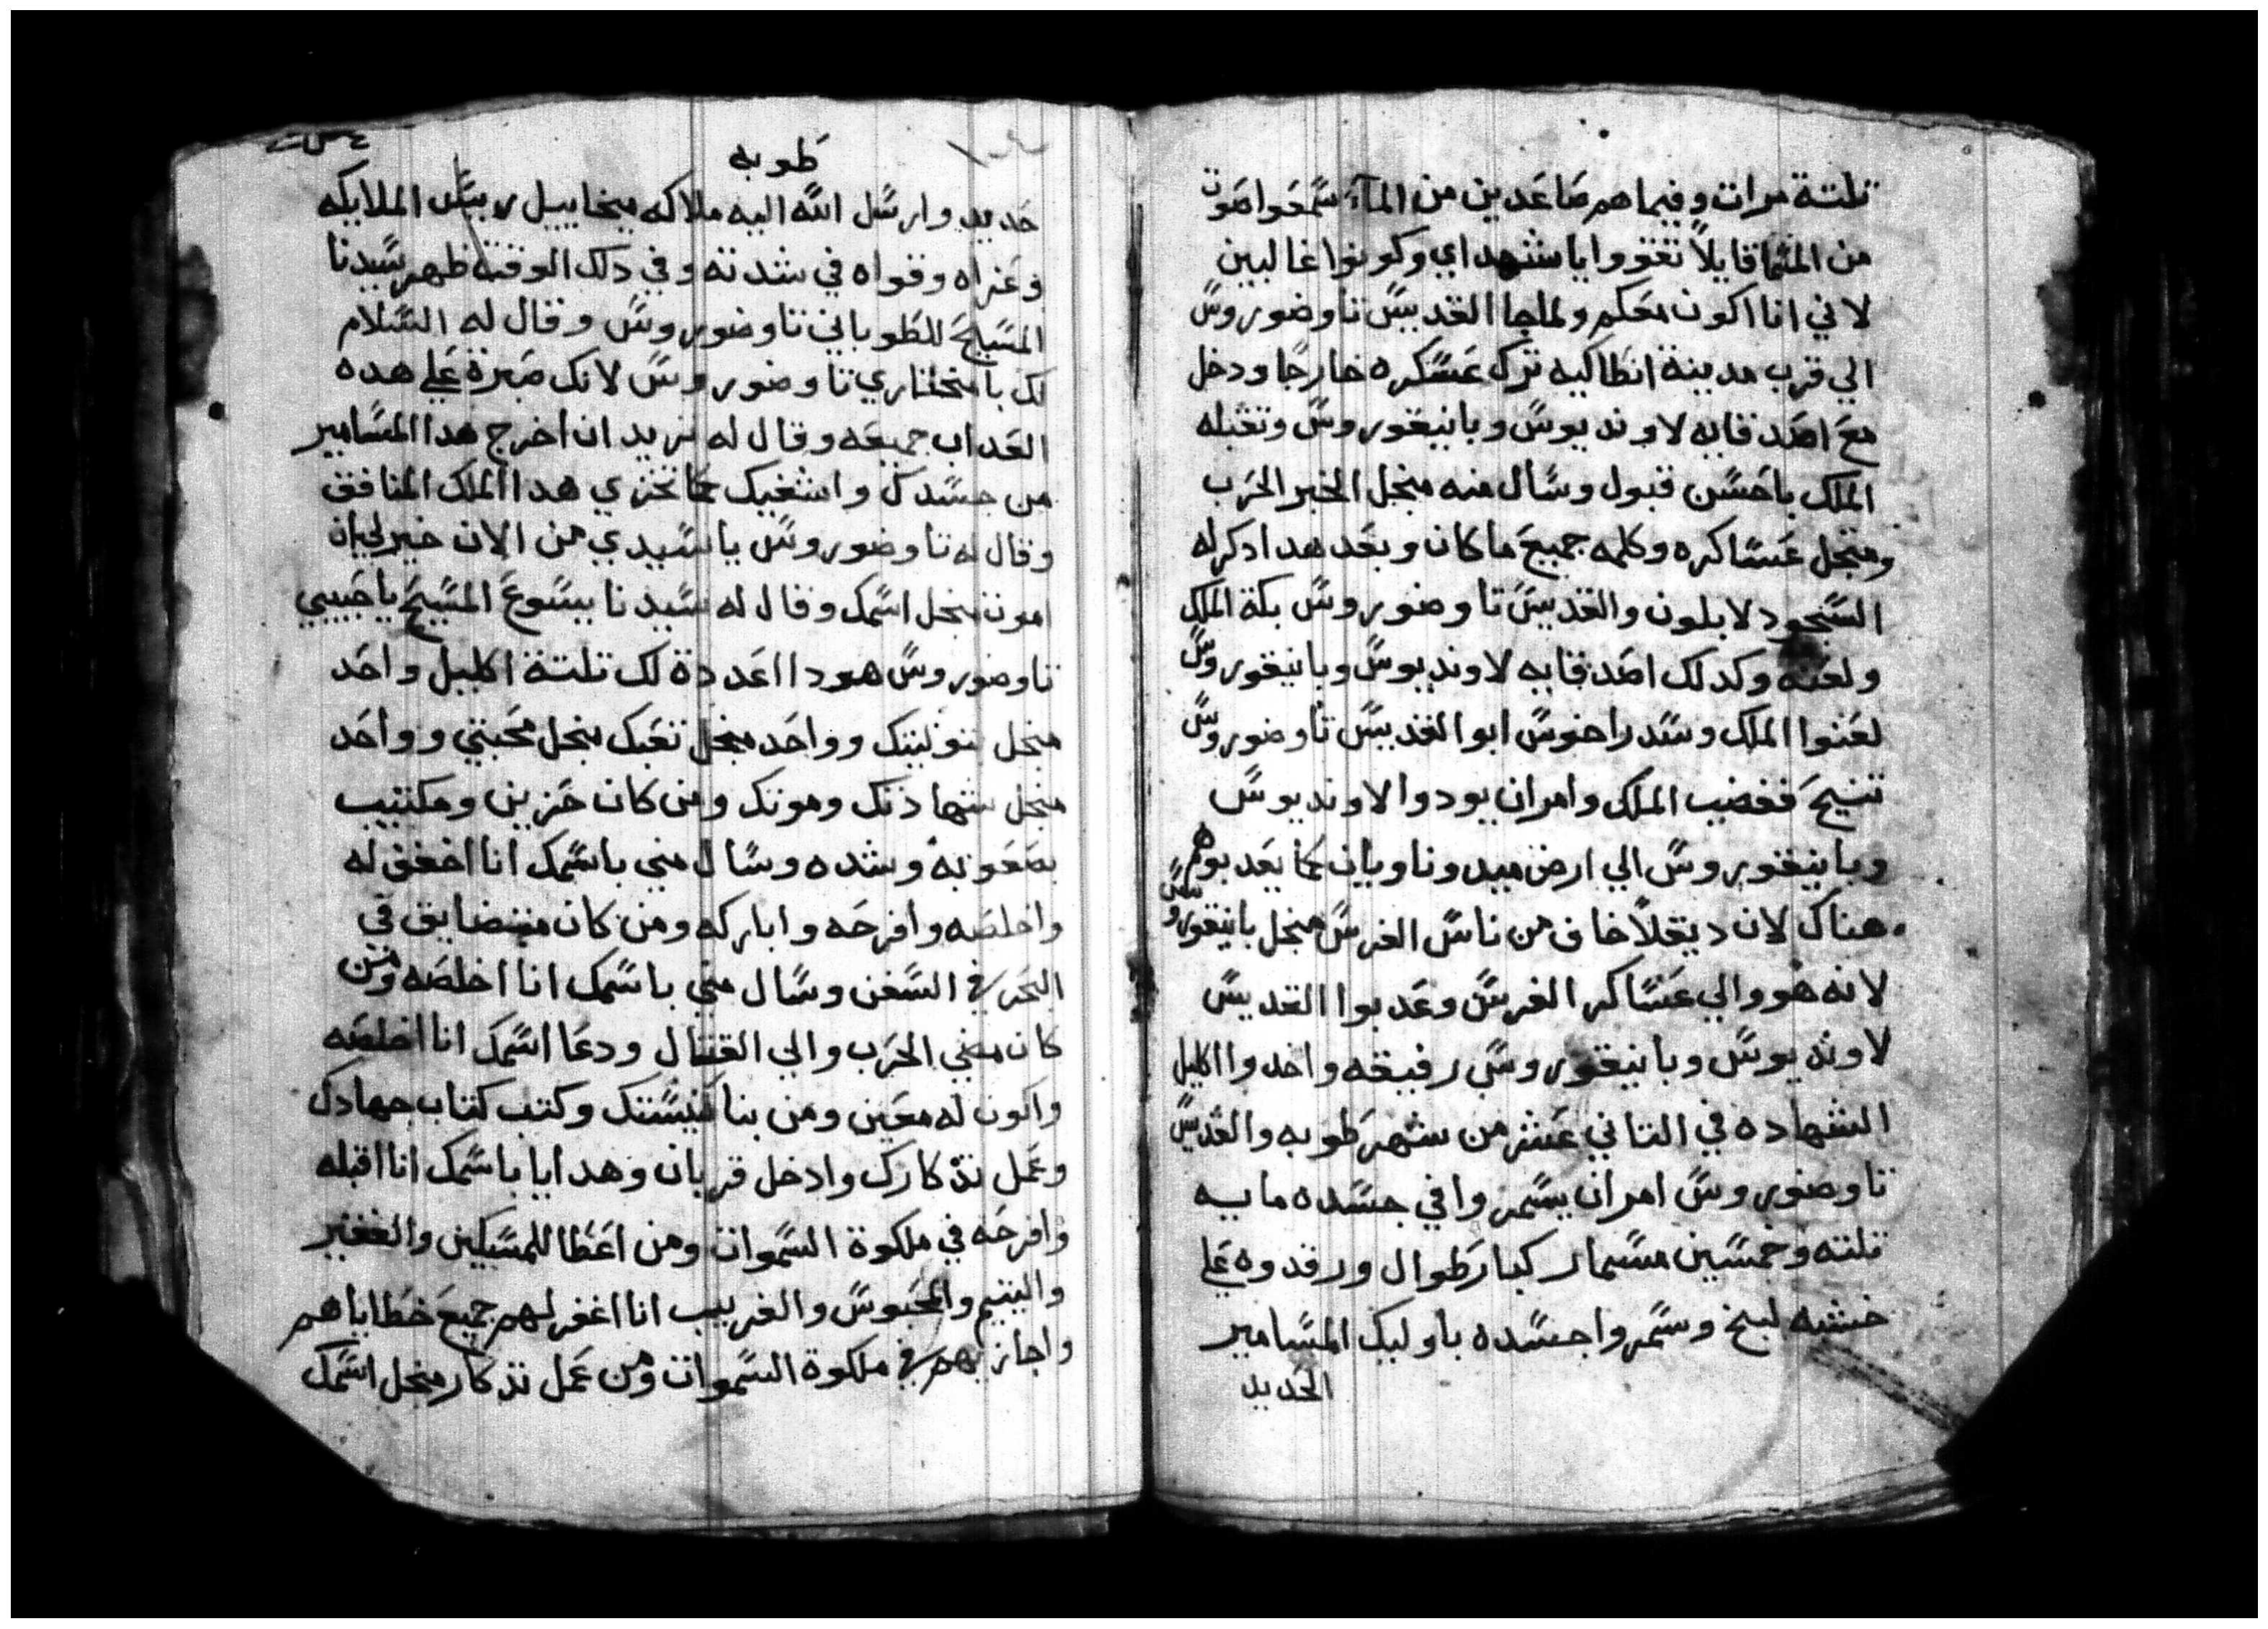 تلتة مرات وفيما هم صاعدين من المآء سمعوا صوت
من السما قايلاً تقووا يا شهداي وكونوا غالبين
لاني انا اكون معكم ولما جا القديس تاوضوروس
الي قرب مدينة انطاكيه ترك عسكره خارجا ودخل
مع اصدقايه لاونديوس وبانيقوروس وتقبله
الملك باحسن قبول وسال منه منجل الخبر الحرب
ومنجل عساكره وكلمه جميع ما كان وبعد هدا دكر له
السجود لابلون والقديس تاوضوروس بكة الملك
ولعنه وكدلك اصدقايه لاونديوس وبانيقوروس
لعنوا الملك وسدراخوس ابو القديس تاوضوروس
تنيح فغضب الملك وامر ان يودوا لاونديوس
وبانيقوروس الي ارض ميدوناويان كما يعدبوهم
هناك لان ديقلا خاف من ناس الفرس منجل بانيقوروس
لانه هو والي عساكر الفرس وعدبوا القديس
لاونديوس وبانيقوروس رفيقه واخدوا اكليل
الشهاده في التاني عشر من شهر طوبه والقديس
تاوضوروس امر ان يسمروا في جسده مايه
تلته وخمسين مسمار كبار طوال ورقدوه علي
خشبه لبخ وسمروا جسده باوليك المسامير
الحديد
طوبه
حديد وارسل الله اليه ملاكه ميخاييل رييس الملايكه
وعزاه وقواه في شدته وفي دلك الوقت ظهر سيدنا
المسيح للطوباني تاوضوروس وقال له السلام
لك يا مختاري تاوضوروس لانك صبرة علي هده
العداب جميعه وقال له تريد ان اخرج هدا المسامير
من جسدك واشفيك كما تخزي هدا الملك المنافق
وقال له تاوضوروس يا سيدي من الان خير لي ان
اموت منجل اسمك وقال له سيدنا يسوع المسيح يا حبيبي
تاوضوروس هودا اعددة لك تلتة اكليل واحد
منجل بتوليتك وواحد منجل تعبك منجل محبتي وواحد
منجل شهادتك وموتك ومن كان حزين ومكتيب
بصعوبه وشده وسال مني باسمك انا اخفف له
واخلصه وافرحه واباركه ومن كان متضايق في
البحر في السفن وسال مني باسمك انا اخلصه ومن
كان مضي الحرب والي القتال ودعا اسمك انا اخلصه
واكون له معين ومن بنا كنيستك وكتب كتاب جهادك
وعمل تذكارك وادخل قربان وهدايا باسمك انا اقبله
وافرحه في ملكوة السموات ومن اعطا للمسكين والفقير
واليتيم والمحبوس والغريب انا اغفر لهم جميع خطاياهم
واجازيهم في ملكوة السموات ومن عمل تذكار منجل اسمك